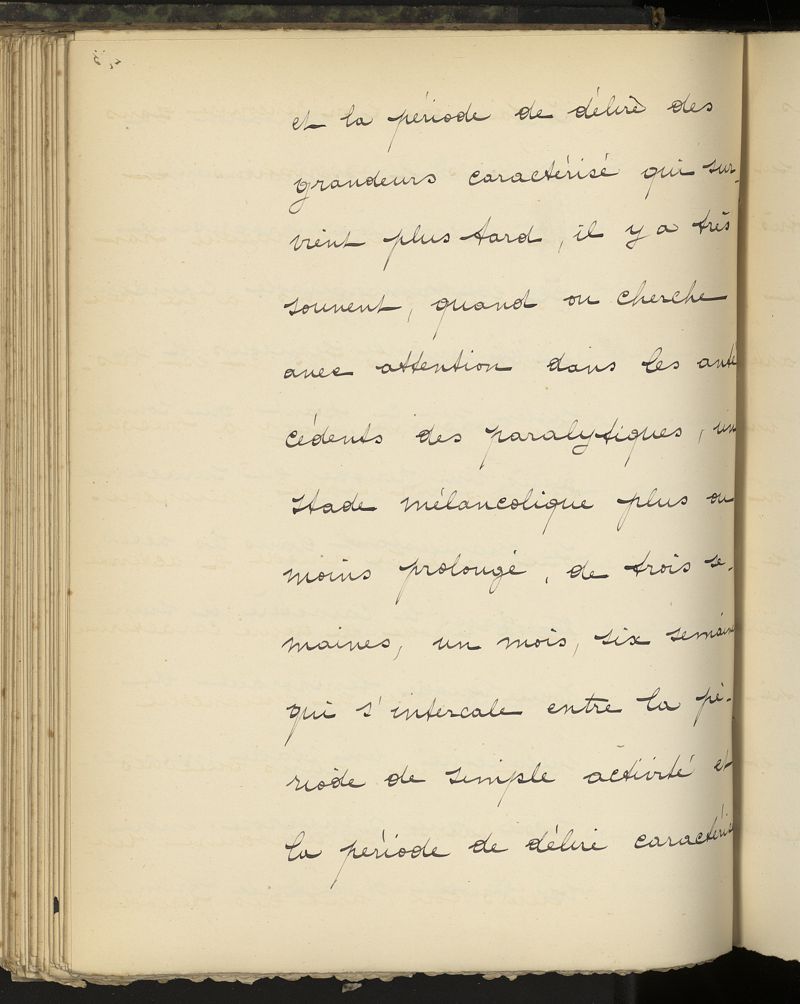 et la période de délire des
grandeurs caractérisé qui sur-
vient plus tard, il y a très
souvent, quand on cherche
avec attention dans les anté
cédents des paralytiques, un
stade mélancolique plus ou
moins prolongé, de trois se-
maines, un mois, six semaines
qui s'intercale entre la pé-
riode de simple activité et
la période de délire caractérisé